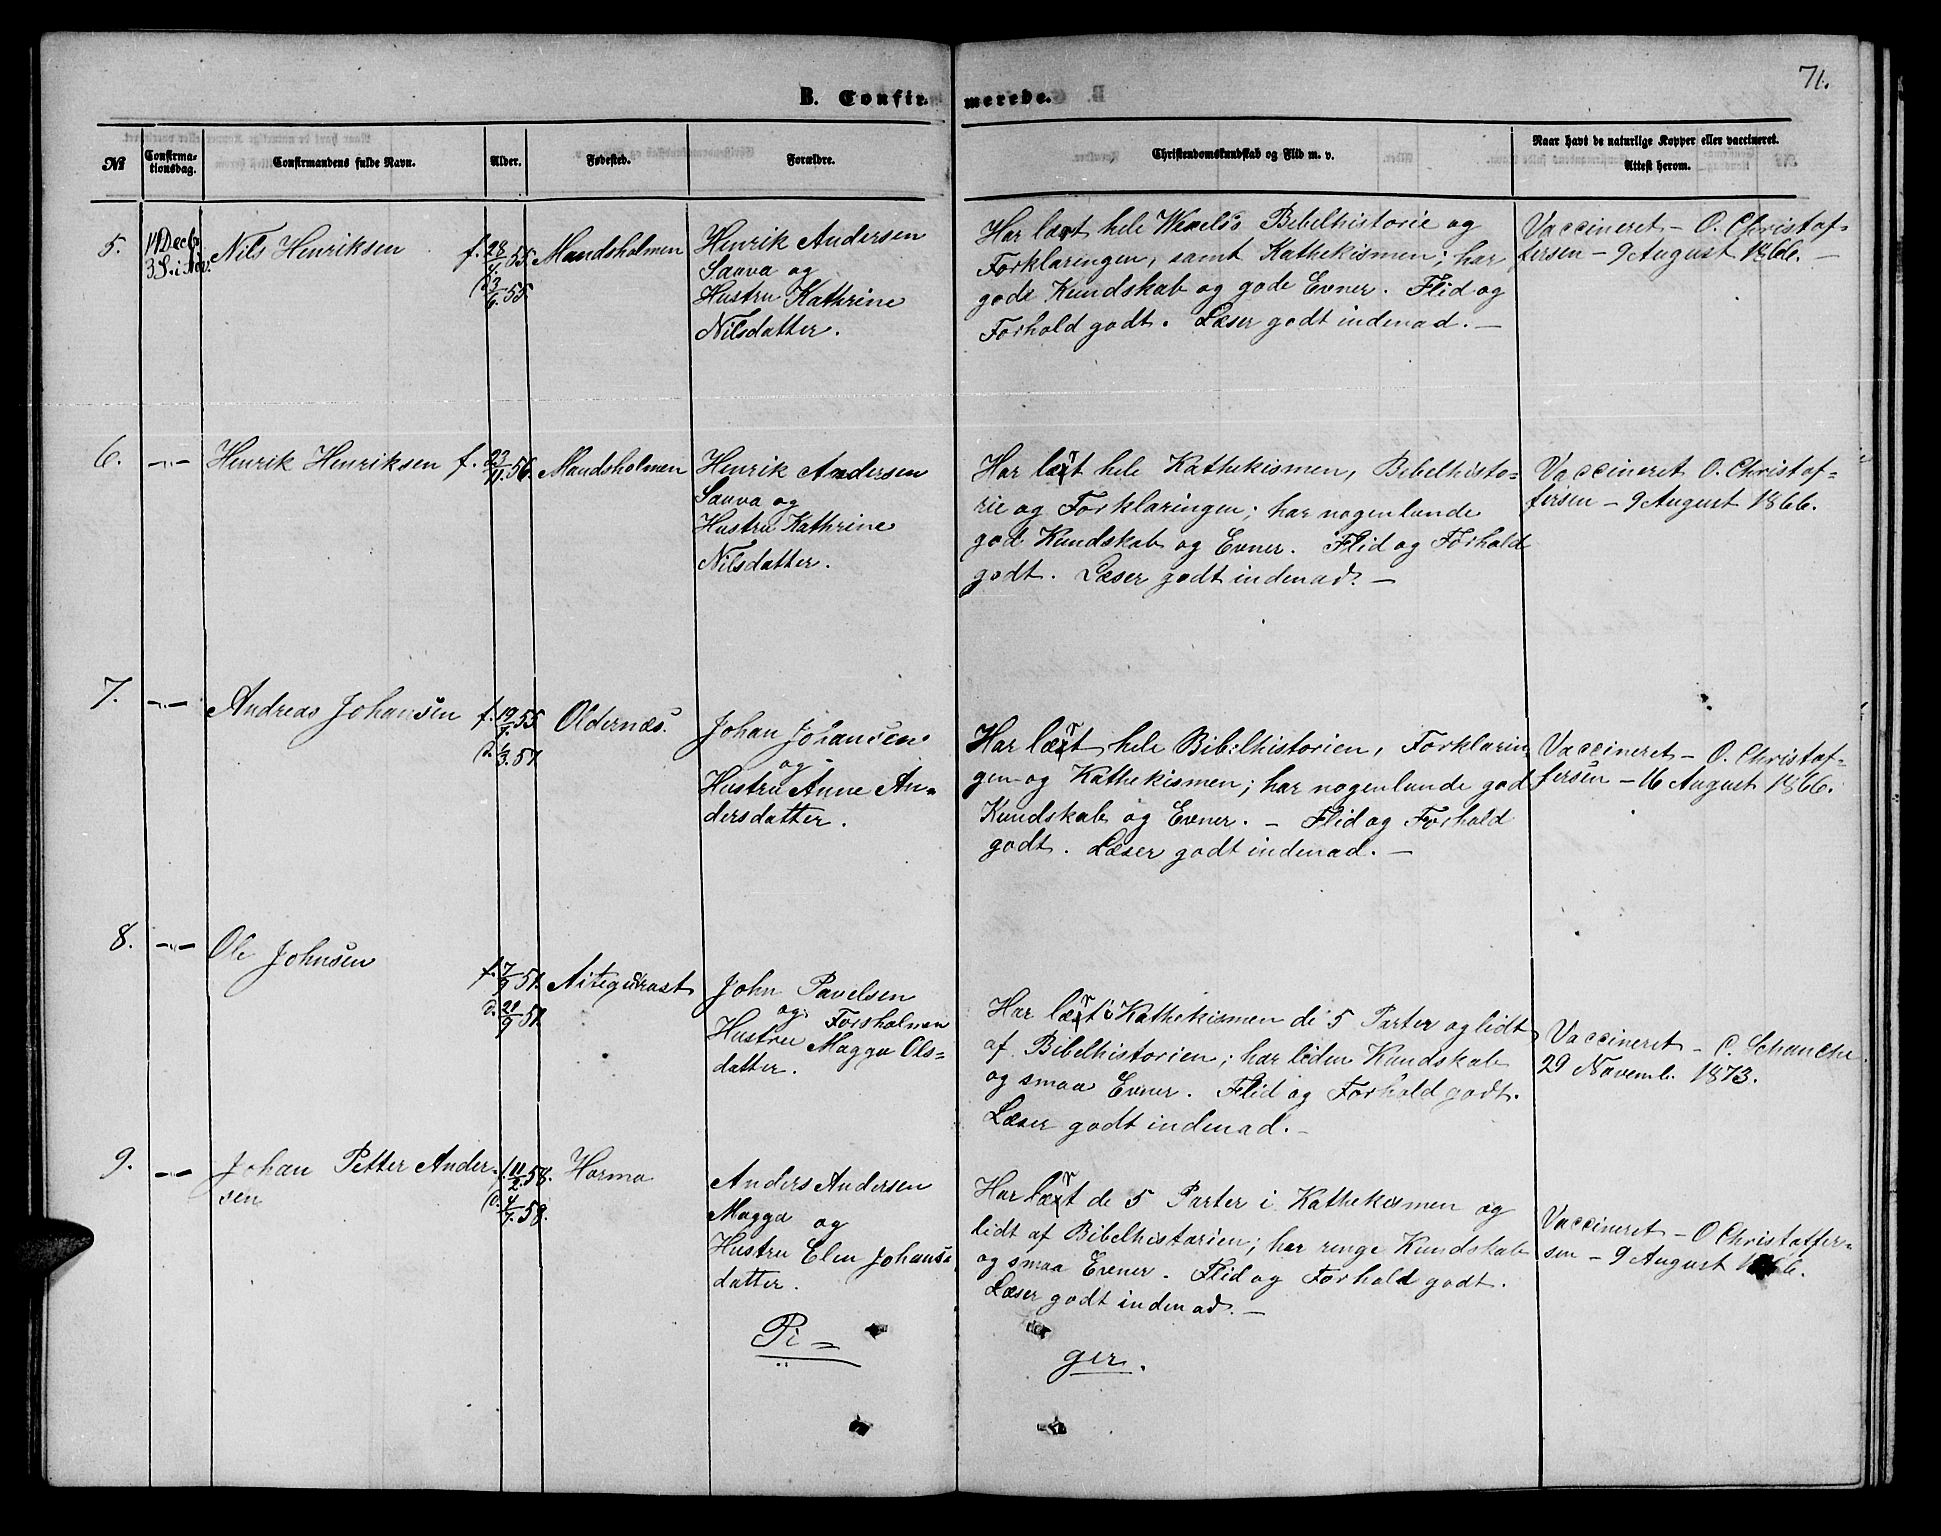 71.
B. Confirmerede.
№ Confirmationsdag. Confirmandens fulde Navn. Alder. Fødested. Forældre. Christendomskundskab og Flid m. v. Naar havt de naturlige Kopper eller vaccineret. Attest herom.
5. 14 Decbr. 3 S. i Adv. Nils Henriksen f. 28/4 55. d. 3/6 55. Mandsholmen
Henrik Andersen
Sauva og
Hustru Kathrine
Nilsdatter.
Har lært hele Wexels's Bibelhistorie og
Forklaringen, samt Kathekismen; har
gode Kundskab og gode Evner. Flid og
Forhold godt. Læser godt indenad. —
Vaccineret – O. Christof-
fersen – 9 August 1866. —
6. —"— Henrik Henriksen f. 23/11 56. Mandsholmen
Henrik Andersen
Sauva og
Hustru Kathrine
Nilsdatter.
Har lært hele Kathekismen, Bibelhisto-
rie og Forklaringen; har nogenlunde
god Kundskab og Evner. Flid og Forhold
godt. Læser godt indenad. —
Vaccineret O. Christof-
fersen – 9 August 1866.
7. —"— Andreas Johansen f. 19/9 55 Oldernæs.
Johan Johansen
og
Hustru Anne An-
dersdatter.
Har lært hele Bibelhistorien, Forklarin
gen og Kathekismen; har nogenlunde god
Kundskab og Evner. – Flid og Forhold
godt. Læser godt indenad. —
Vaccineret – O. Christof-
fersen – 16 August 1866.
8. —"— Ole Johnsen
John Pavelsen
og Forsholmen
Hustru Magga Ols-
datter.
Har lært i Kathekismen de 5 Parter og lidt
af Bibelhistorien; har liden Kundskab
og smaa Evner. Flid og Forhold godt.
Læser godt indenad. –
Vaccineret – C. Schanche
29 Novemb. 1873.
9. —"— Johan Petter Ander-
sen
f. 11/2 58. d. 4/7 58. Horma
Anders Andersen
Magga og
Hustru Elen Johans-
datter.
Har lært de 5 Parter i Kathekismen og
lidt af Bibelhistorien; har ringe Kundskab
og smaa Evner. Flid og Forhold godt.
Læser godt indenad. —
Vaccineret – O Christoffer-
sen – 9 August 1866.
Pi-
ger.